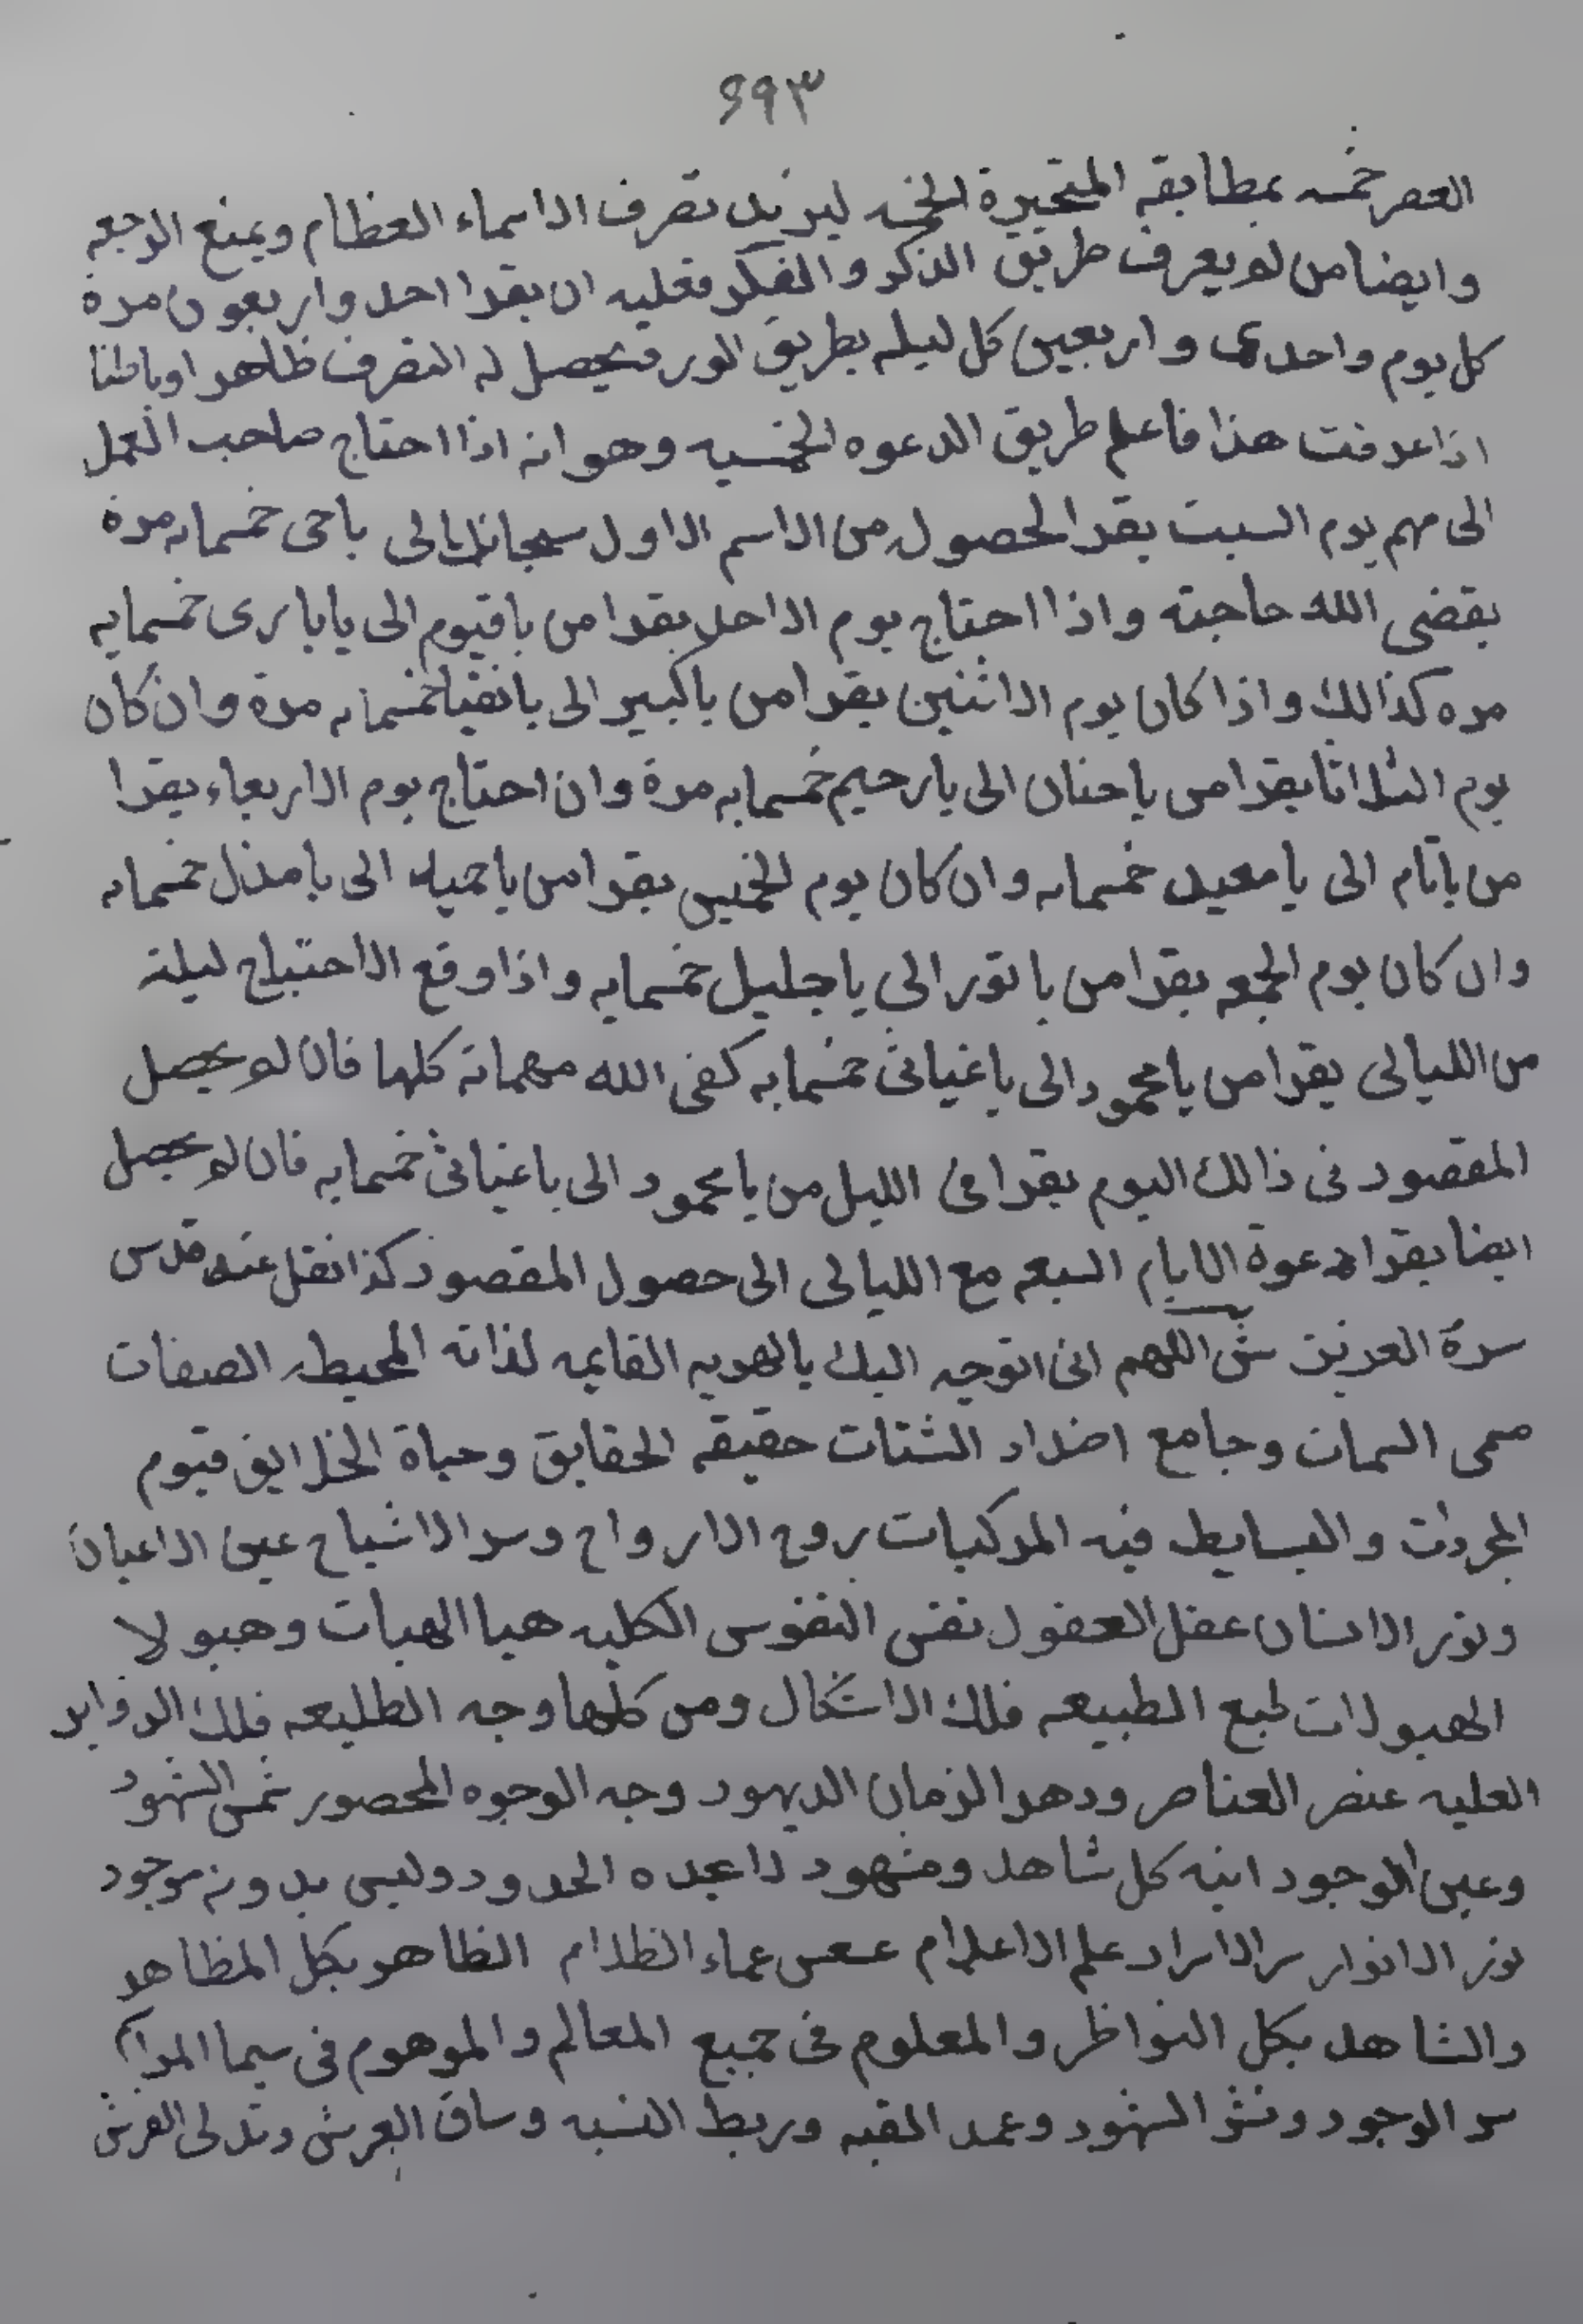 ٢٩٣
العصر خمسه بمطابقه المتحيرة الخمسه ليزيد تصرف الاسماء العظام ويمنع الرجعه
وايضا من لم يعرف طريق الذكر والفكر فعليه ان يقرا احد واربعون مرة
كل يوم واحدى واربعين كل ليله بطريق الورد يحصل له التصرف ظاهرا وباطنا
اذا عرفت هذا فاعلم طريق الدعوه الخمسيه وهو انه اذا احتاج صاحب العمل
الى مهم يوم السبت يقرا لحصوله من الاسم الاول سبحانك الى ياحى خمسمايه مرة
يقضى الله حاجته واذا احتاج يوم الاحد يقرا من ياقيوم الى يابارى خمسمايه
مره كذالك واذا كان يوم الاثنين يقرا من ياكبير الى يانقيا خمسمايه مرة وان كان
يوم الثلاثا يقرا من ياحنان الى يارحيم خمسمايه مرة وان احتاج يوم الاربعاء يقرا
من ياتام الى يامعيد خمسمايه وان كان يوم الخميس يقرا من ياحميد الى يامذل خمسمايه
وان كان يوم الجمعه يقرا من يانور الى ياجليل خمسمايه واذا وقع الاحتياج ليلة
من الليالى يقرا من يامحمود الى ياغياثى خمسمايه كفى الله مهماته كلها فان لم يحصل
المقصود فى ذالك اليوم يقرا فى الليل من يامحمود الى ياغياثى خمسمايه فان لم يحصل
ايضا يقرا دعوة الايام السبعه مع الليالى الى حصول المقصود كذا نقل عنه قدس
سرة العزيز اللهم انى اتوجه اليك بالهويه القايمه لذاته المحيطه الصفات
مسمى السمات وجامع اضداد الشتات حقيقه الحقايق وحياة الخلايق قيوم
المجردات والبسايط فيه المركبات روح الارواح وسر الاشباح عين الاعيان
ونور الانسان عقل العقول نفس النفوس الكليه هيا الهيات وهيولا
الهيولات طبع الطبيعه فلك الاشكال ومن كلها وجه الطليعه فلك الدواير
العليه عنصر العناصر ودهر الزمان الديهود وجه الوجوه المحصور شمس الشهود
وعين الوجود انيه كل شاهد ومشهود لا تحده الحدود وليس بدونه موجود
نور الانوار سر الاسرار علم الاعلام عماء الظلام الظاهر بكل المظاهر
والشاهد بكل النواظر والمعلوم فى جميع المعالم والموهوم فى سيما
سر الوجود ونشو الشهود وعمد القبه وربط النسبه وساق العرش وتدلى الفرش